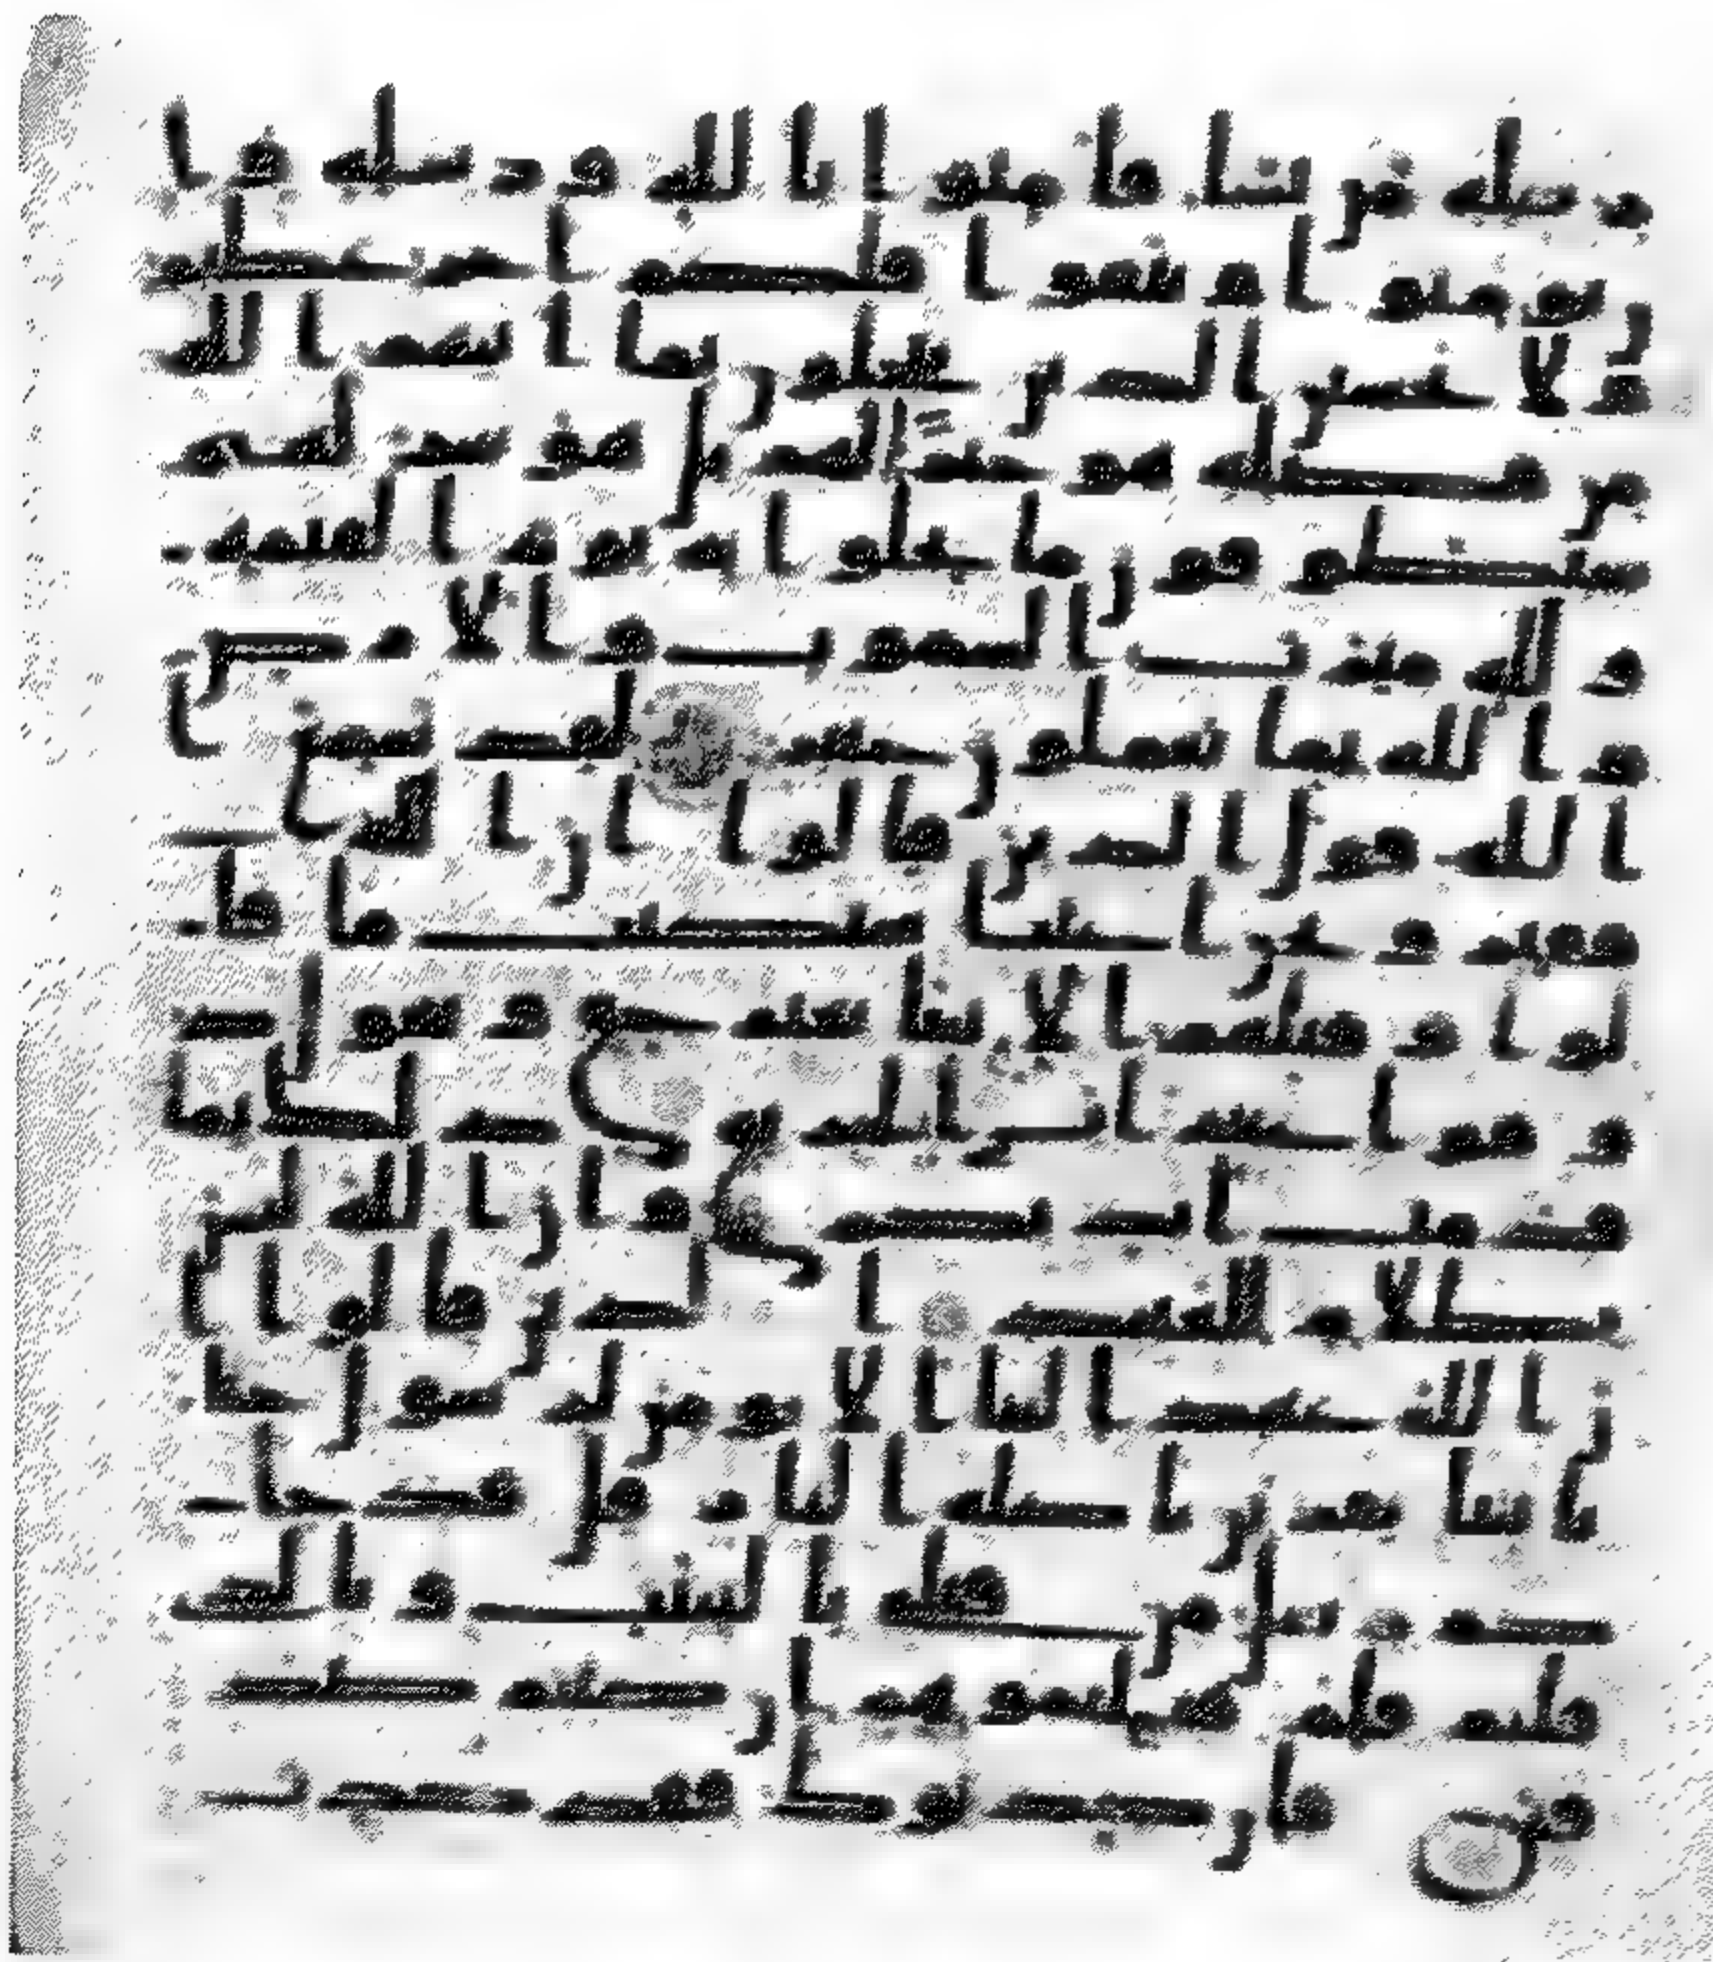 رسله من يشا فامنوا بالله ورسله وا
ن تومنوا وتتقوا فلكم اجر عظيم
ولا يحسبن الذين يبخلون بما اتيهم الله
من فضله هو خيرا لهم بل هو شر لهم
سيطوقون ما بخلوا به يوم القيمه
ولله ميرث السموت والارض
والله بما تعملون خبير لقد سمع
الله قول الذين قالوا ان الله
فقير ونحن اغنيا سنكتب ما قا
لوا وقتلهم الانبيا بغير حق ونقول ذ
وقوا عذاب الحريق ذلك بما
قدمت ايديكم وان الله ليس
بظلام للعبيد الذين قالوا ا
ن الله عهد الينا الا نومن لرسول حتا
ياتينا بقربن تاكله النار قل قد جا
كم رسل من قبلي بالبينت وبالذي
قلتم فلم قتلتموهم ان كنتم صد
قين فان كذبوك فقد كذب